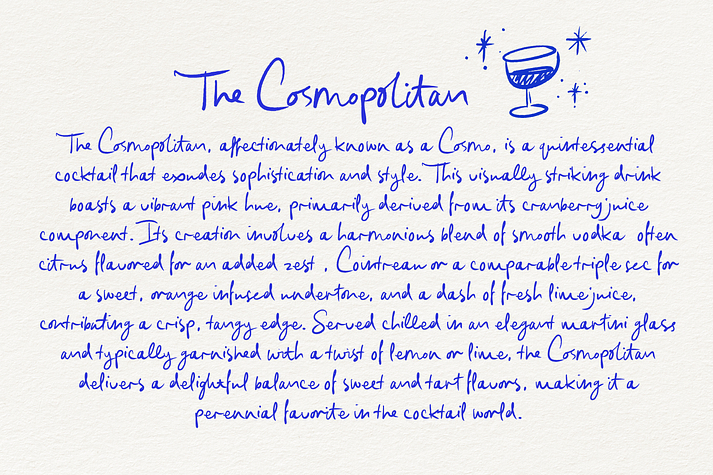 The Cosmopolitan
The Cosmopolitan, affectionately known as a Cosmo, is a quintessential
cocktail that exoudes sophistication and style. This visually striking drink
boasts a vibrant pink hue, primarily derived from its cranberry juice
component. Its creation involves a harmonious blend of smooth vodka often
citrus flavored for an added zest , Cointreau or a comparable triple sec for
a sweet, orange infused undertone, and a dash of fresh lime juice,
contributing a crisp, tangy edge. Served chilled in an elegant martini glass
and typically garnished with a twist of lemon or lime, the Cosmopolitan
delivers a delightful balance of sweet and tart flavors, making it a
perennial favorite in the cocktail world.